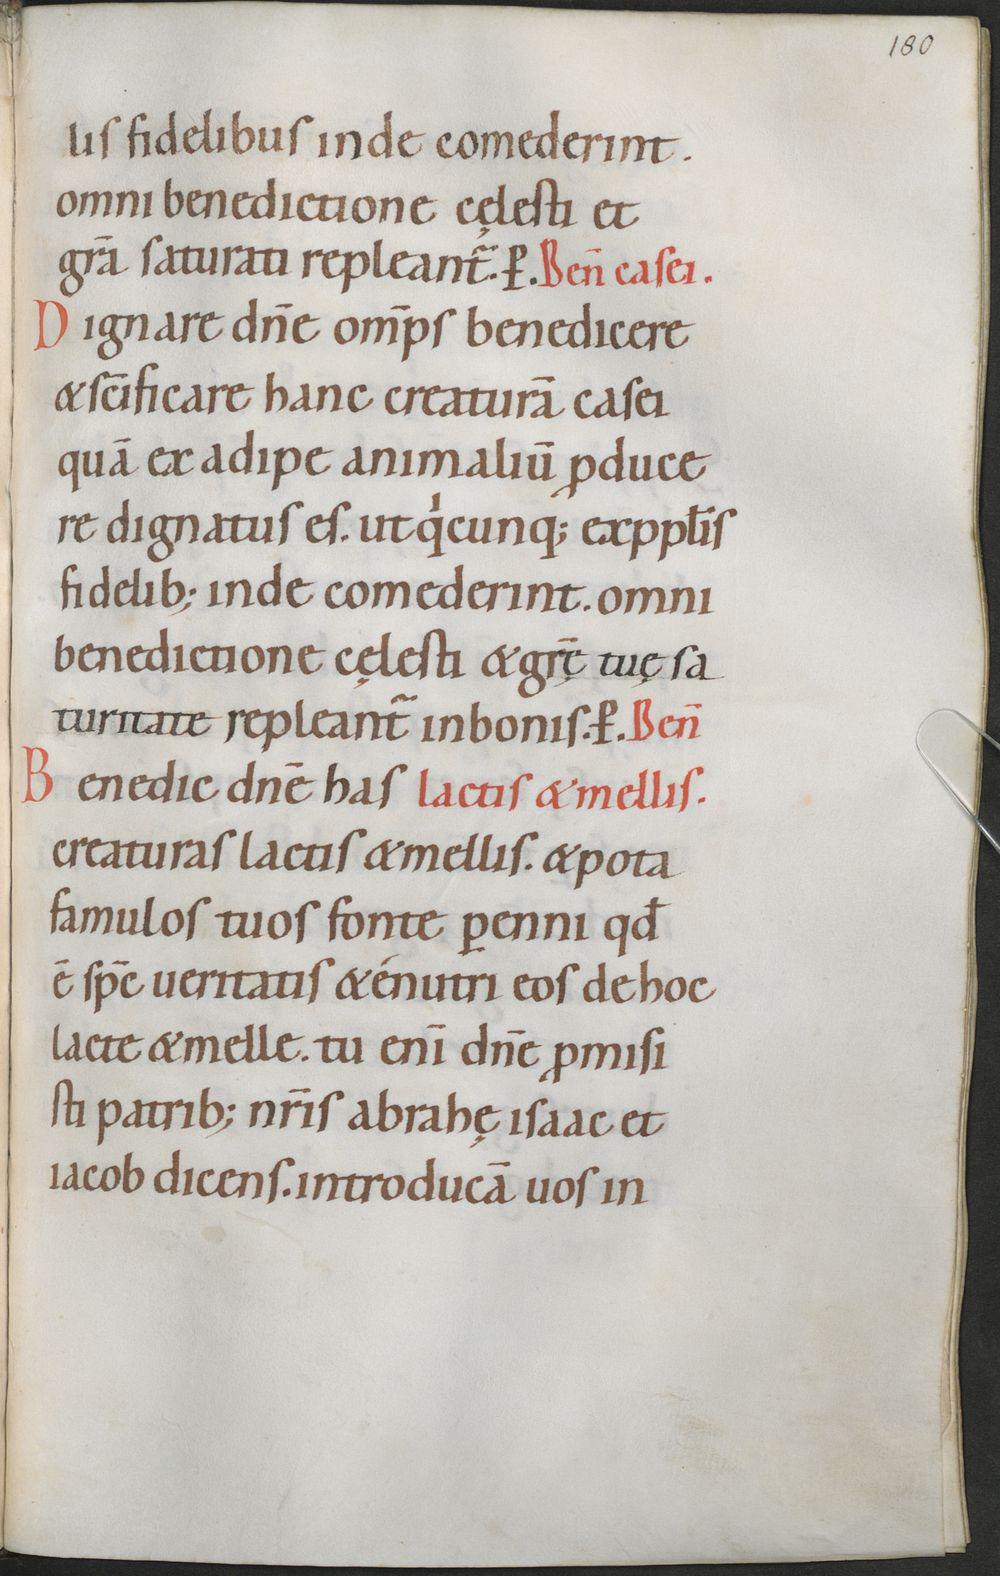 180
lis fidelibus inde comederint.
omni benedictione cęlesti et
gr̄a saturati repleant᷑. ꝑ. Ben̄ casei.
Dignare dn̄e om̄ps benedicere
& sc̄ificare hanc creaturā casei
quā ex adipe animaliū ꝓduce
re dignatus es. ut qͥcunq; ex ppl̄is
fidelib; inde comederint. omni
benedictione cęlesti & gr̄ę tuę sa
turitate repleant᷑ in bonis. ꝑ. Ben̄
Benedic dn̄e has lactis & mellis.
creaturas lactis & mellis. & pota
famulos tuos fonte ꝑenni qđ
ē sp̄c ueritatis & enutri eos de hoc
lacte & melle. tu enī dn̄e ꝓmisi
sti patrib; nr̄is abrahę isaac et
iacob dicens. introducā uos in